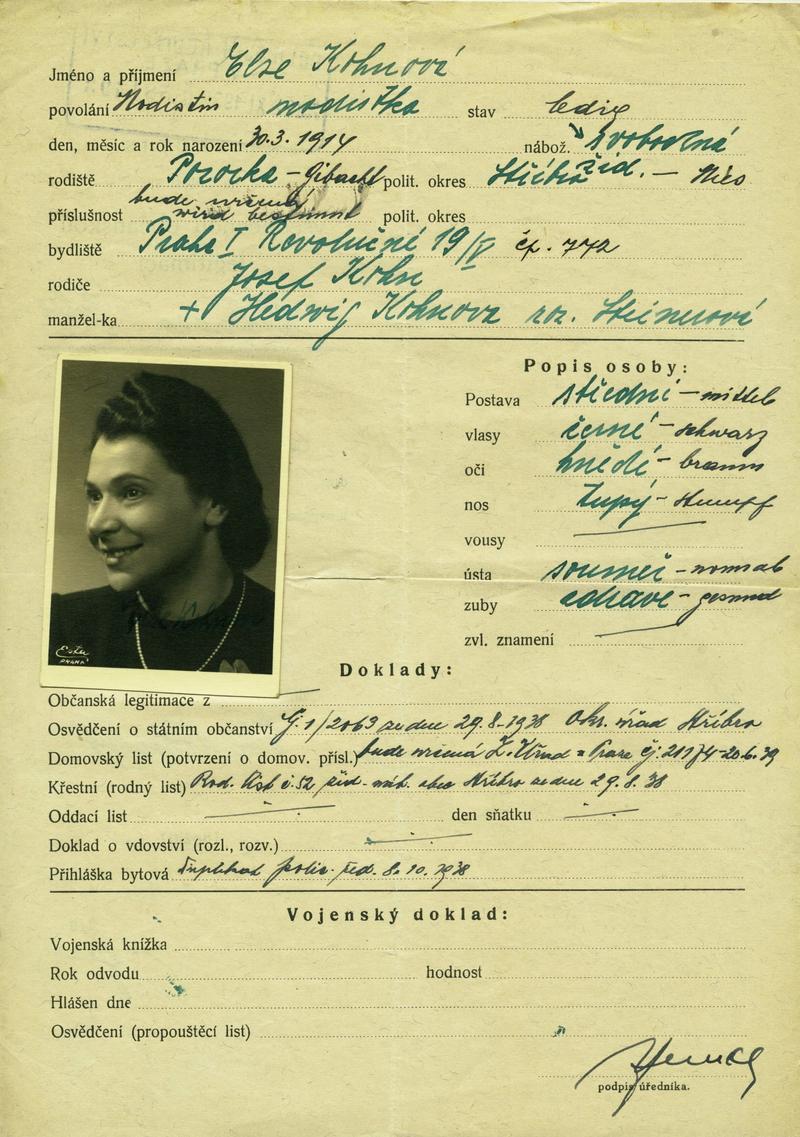 Jméno a příjmení Else Kohnová
povolání Modistin modistka stav ledig
svobodná
den, měsíc a rok narození 30.3.1914 nábož. žid.
rodiště - Gibacht polit. okres Stříbro - Mies
bude určena
příslušnost wird bestimmt polit. okres
bydliště Praha I Revoluční 19/V čp. 772
rodiče Josef Kohn
manžel-ka + Hedwig Kohnova roz. Steinerová
Popis osoby:
Postava střední - mittel
vlasy černé - schwarz
oči hnědé - braun
nos tupý - stumpf
vousy
ústa souměr - normal
zuby zdravé - gesund
zvl. znamení
PRAHA
Doklady:
Občanská legitimace z
Osvědčení o státním občanství G.1/2069 ze dne 29.8.1938 Okr. úřad Stříbro
Domovský list (potvrzení o domov. přísl.) bude určena Z. Úřad v Praze čj. 20.6.39
Křestní (rodný list) Rod. list č. 52 žid. náb. obce Stříbro ze dne 29.8.38
Oddací list den sňatku
Doklad o vdovství (rozl., rozv.)
Přihláška bytová Duplikát polic. řed. 8.10.1938
Vojenský doklad:
Vojenská knížka
Rok odvodu hodnost
Hlášen dne
Osvědčení (propouštěcí list)
podpis úředníka.